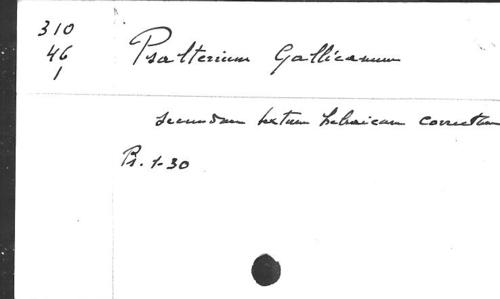 310
46
1
Psalterium Gallicanum
secundum textum hebraicum correctum
Ps. 1-30